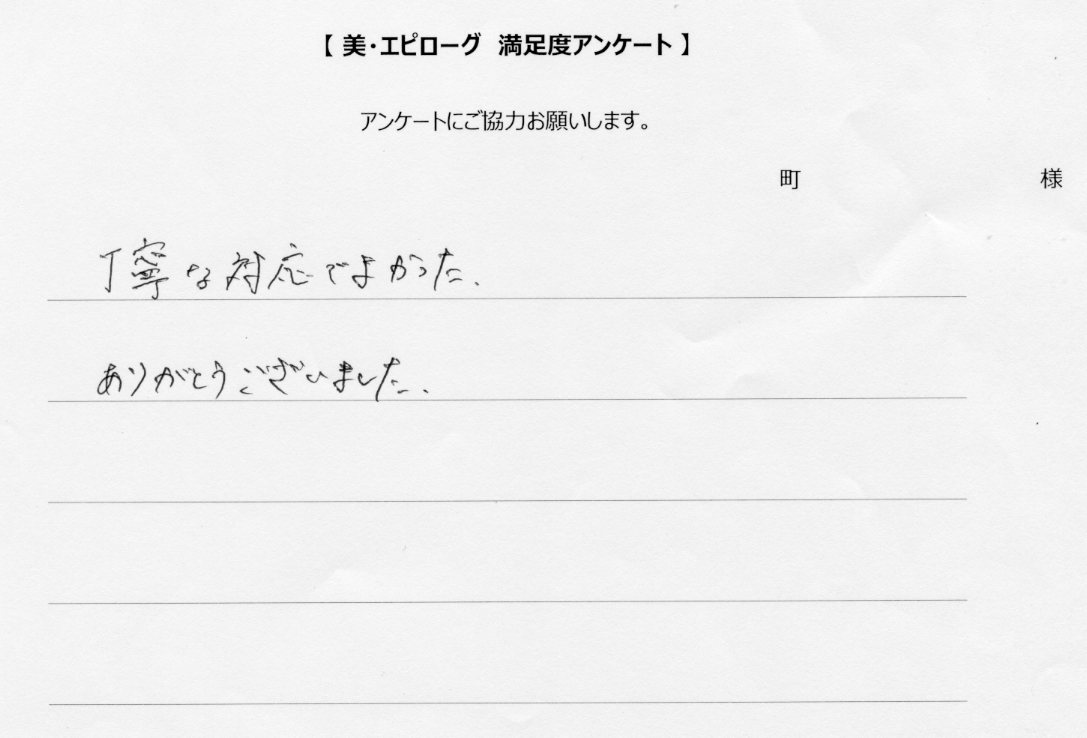 【 美・エピローグ 満足度アンケート 】
アンケートにご協力お願いします。
町 様
丁寧な対応でよかった.
ありがとうございました.